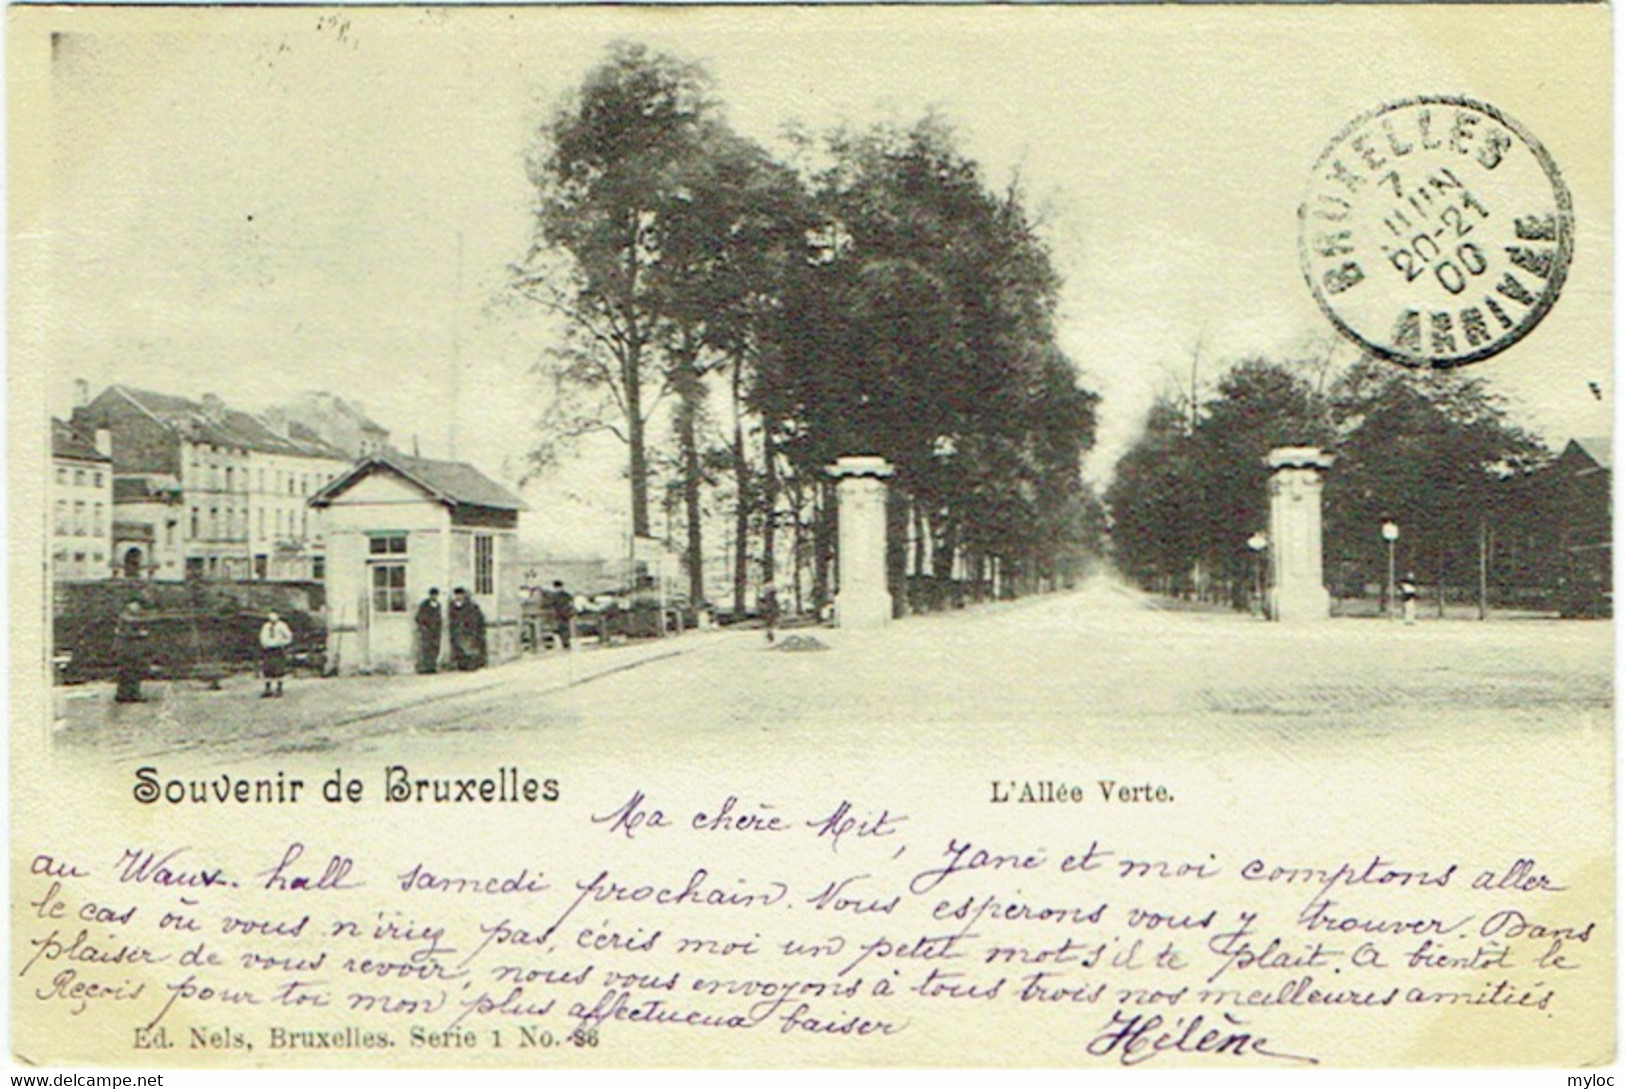 BRUXELLES
7
JUIN
20-21
00
ARRIVEE
Souvenir de Bruxelles
L'Allée Verte.
Ma chère Mit,
Jane et moi comptons aller
au Waux-hall samedi prochain. Nous espérons vous y trouver. Dans
le cas où vous n'iriez pas, écris moi un petit mot s'il te plait. A bientôt le
plaisir de vous revoir, nous vous envoyons à tous trois nos meilleures amitiés.
Reçois pour toi mon plus affectueux baiser
Hélène
Ed. Nels, Bruxelles. Serie 1 No. 86
Delcampe.net
myloc